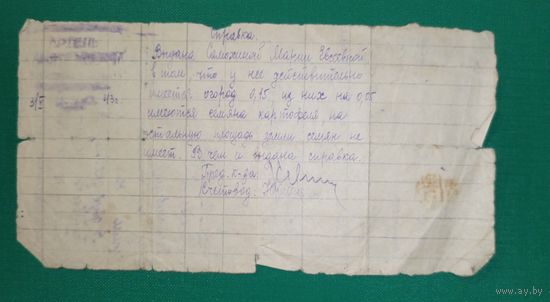 Справка.
АРТЕЛЬ
Выдана Саложиной Марии Евсеевной
в том, что у нее действительно
имеется огород 0,15 из них на 0,05
имеются семяна картофеля, на
остальную площадь земли семян не
имеет. В чем и выдана справка.
Пред. к-за:
Счетовод:
www.ay.by